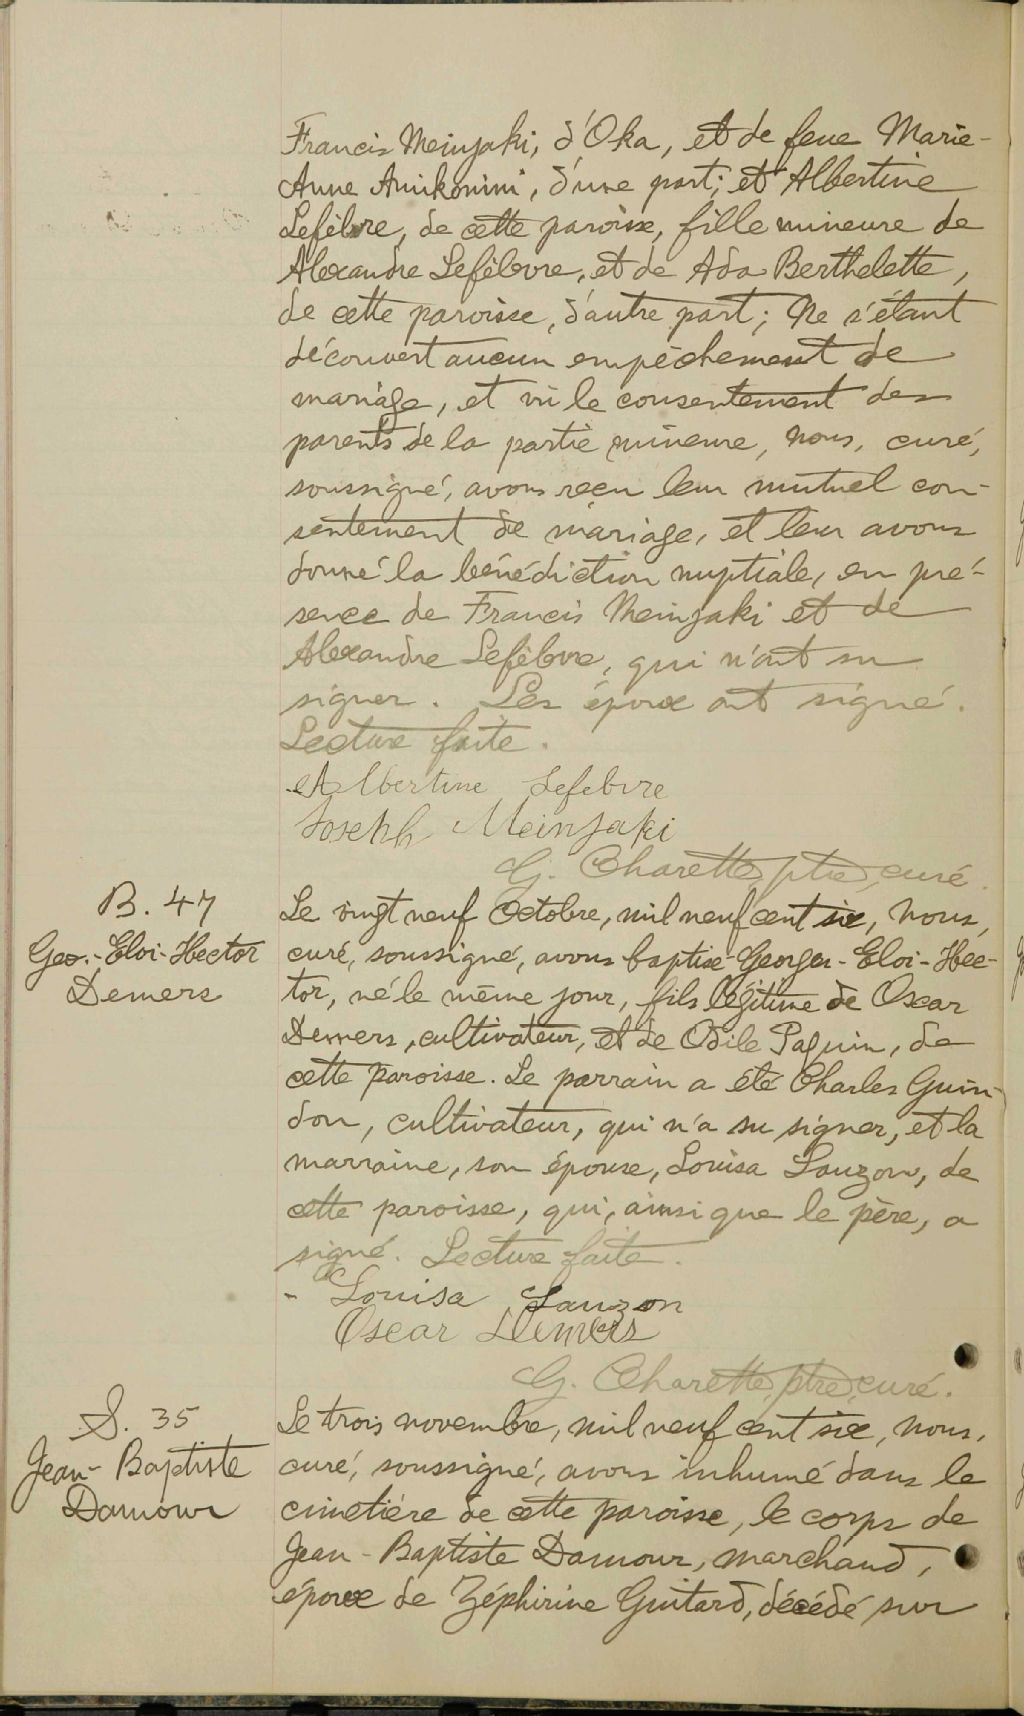 Francis Meinjaki, d'Oka, et de feue Marie-
Anne Amikonini, d'une part; et Albertine
Lefèbvre, de cette paroisse, fille mineure de
Alexandre Lefèbvre, et de Ada Berthelette,
de cette paroisse, d'autre part; Ne s'étant
découvert aucun empêchement de
mariage, et vu le consentement des
parents de la partie mineure, Nous, curé,
soussigné, avons reçu leur mutuel con-
sentement de mariage, et leur avons
donné la bénédiction nuptiale, en pré-
sence de Francis Meinjaki et de
Alexandre Lefèbvre, qui n'ont su
signer. Les époux ont signé.
Lecture faite.
Albertine Lefebvre
Joseph Meinjaki
G. Charette, ptre, curé.
B. 47
Geo.-Eloi-Hector
Demers
Le vingt neuf Octobre, mil neuf cent six, Nous,
curé, soussigné, avons baptisé Georges-Eloi-Hec-
tor, né le même jour, fils légitime de Oscar
Demers, cultivateur, et de Odile Paquin, de
cette paroisse. Le parrain a été Charles Guin-
don, cultivateur, qui n'a su signer, et la
marraine, son épouse, Louisa Lauzon, de
cette paroisse, qui, ainsi que le père, a
signé. Lecture faite.
- Louisa Lauzon
Oscar Demers
G. Charette, ptre, curé.
S. 35
Jean-Baptiste
Damour
Le trois novembre, mil neuf cent six, Nous,
curé, soussigné, avons inhumé dans le
cimetière de cette paroisse, le corps de
Jean-Baptiste Damour, marchand,
époux de Zéphirine Guitard, décédé sur